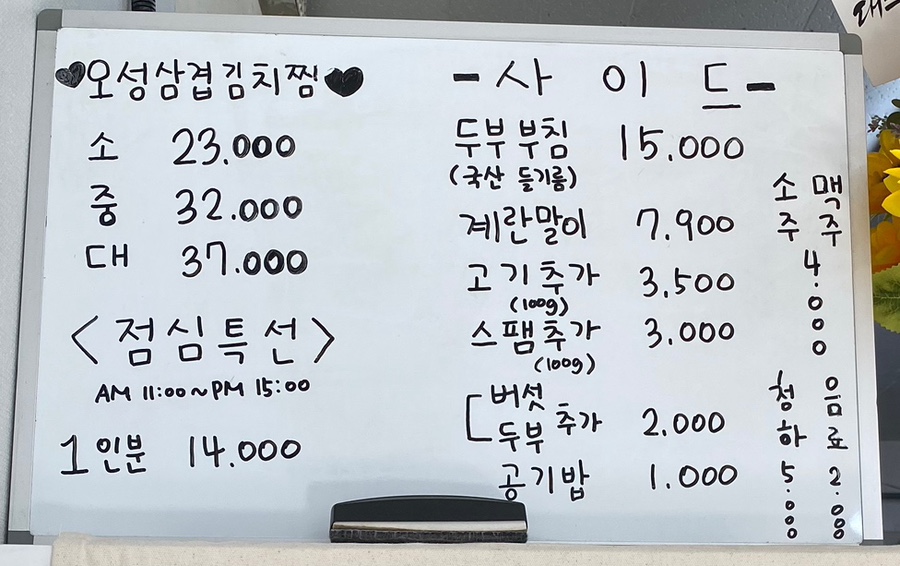 오성삼겹김치찜
소 23.000
중 32.000
대 37.000
<점심특선>
AM 11:00~PM 15:00
1인분 14.000
-사이드-
두부부침 15.000
(국산 들기름)
계란말이 7.900
고기추가 3.500
(100g)
스팸추가 3.000
(100g)
버섯
두부 추가 2.000
공기밥 1.000
소주 맥주
4.000
청하 5.000
음료 2.000